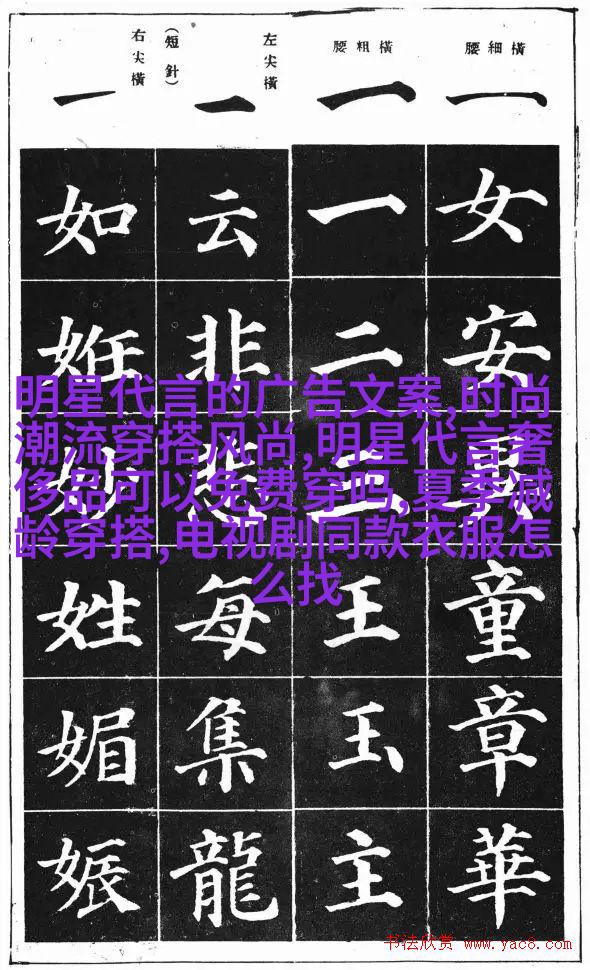 橫細腰
一
女安童章華
橫粗腰
一
一二三王玉主
左尖橫
(短針)
一
云非悲每集龍
右尖橫
一
如姙妙姓媚娠
明星代言的广告文案,时尚
潮流穿搭风尚,明星代言奢
侈品可以免费穿吗,夏季减
龄穿搭,电视剧同款衣服怎
么找
书法欣赏 www.yac8.com